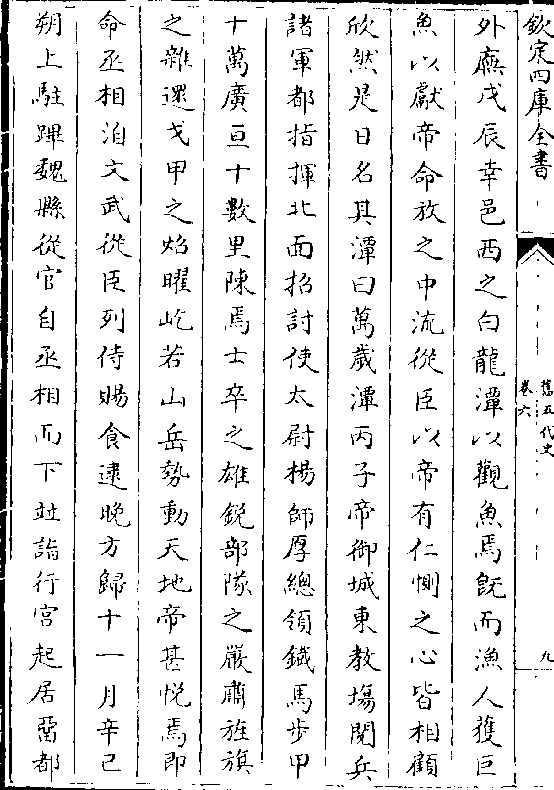 欽定四庫全書
舊五代史
卷六
九
外廡戊辰幸邑西之白龍潭以觀魚焉既而漁人獲巨
魚以獻帝命放之中流從臣以帝有仁惻之心皆相顧
欣然是日名其潭曰萬歲潭丙子帝御城東教塲閱兵
諸軍都指揮北面招討使太尉楊師厚總領鐵馬步甲
十萬廣亘十數里陳焉士卒之雄銳部隊之嚴肅旌旗
之雜遝戈甲之焰曜屹若山岳勢動天地帝甚悅焉即
命丞相洎文武從臣列侍賜食逮晚方歸十一月辛巳
朔上駐蹕魏縣從官自丞相而下並詣行宫起居留都